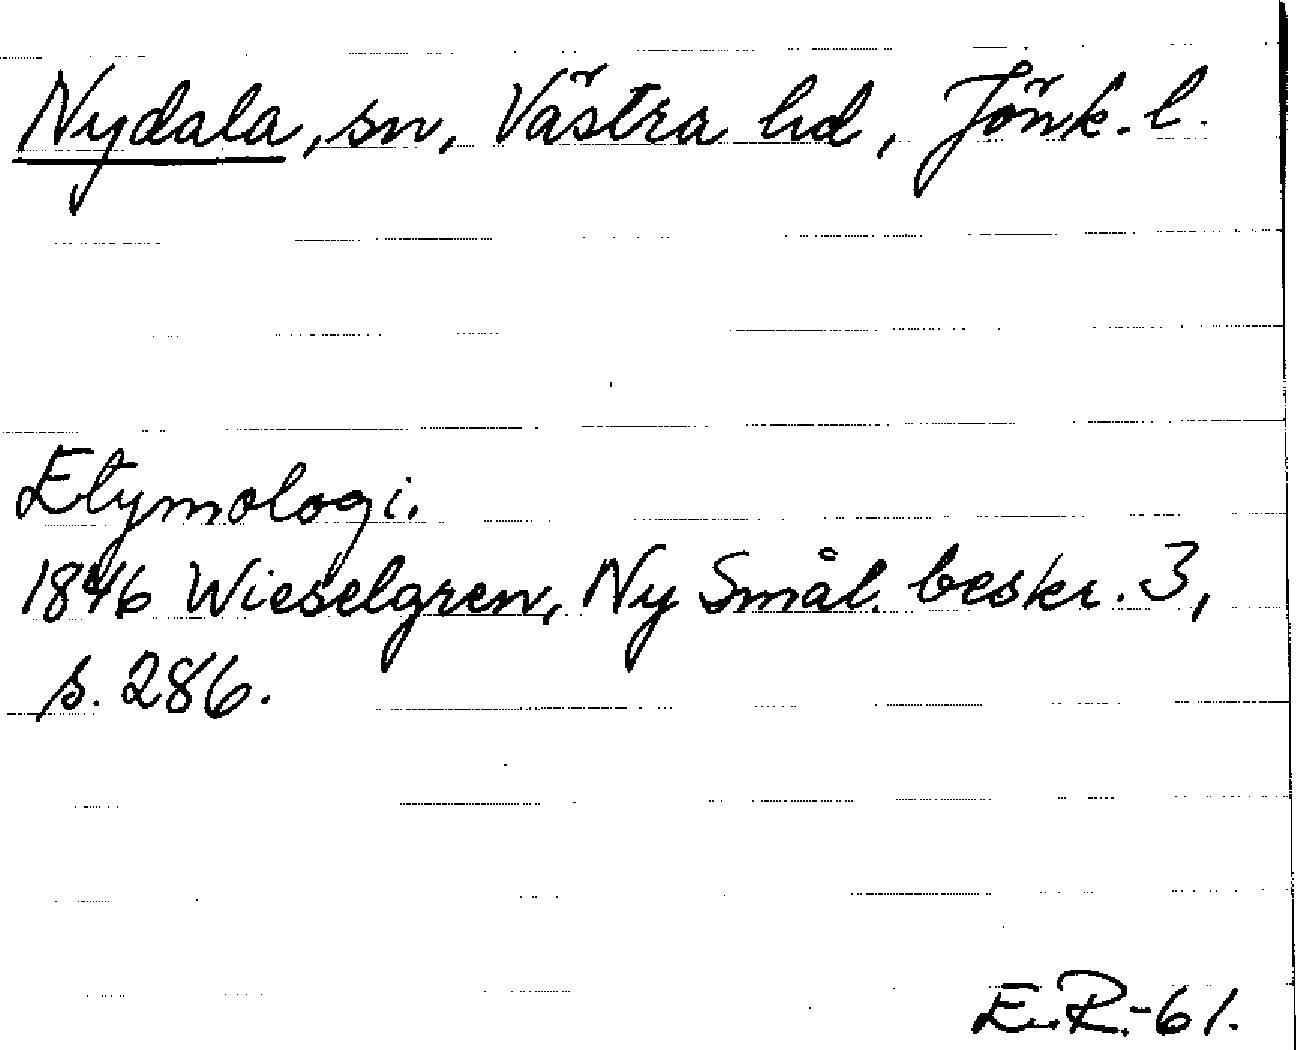 Nydala, sn, Västra hd, Jönk. l.
Etymologi.
1846 Wieselgren, Ny Smål. beskr. 3,
s. 286.
E.R.-61.